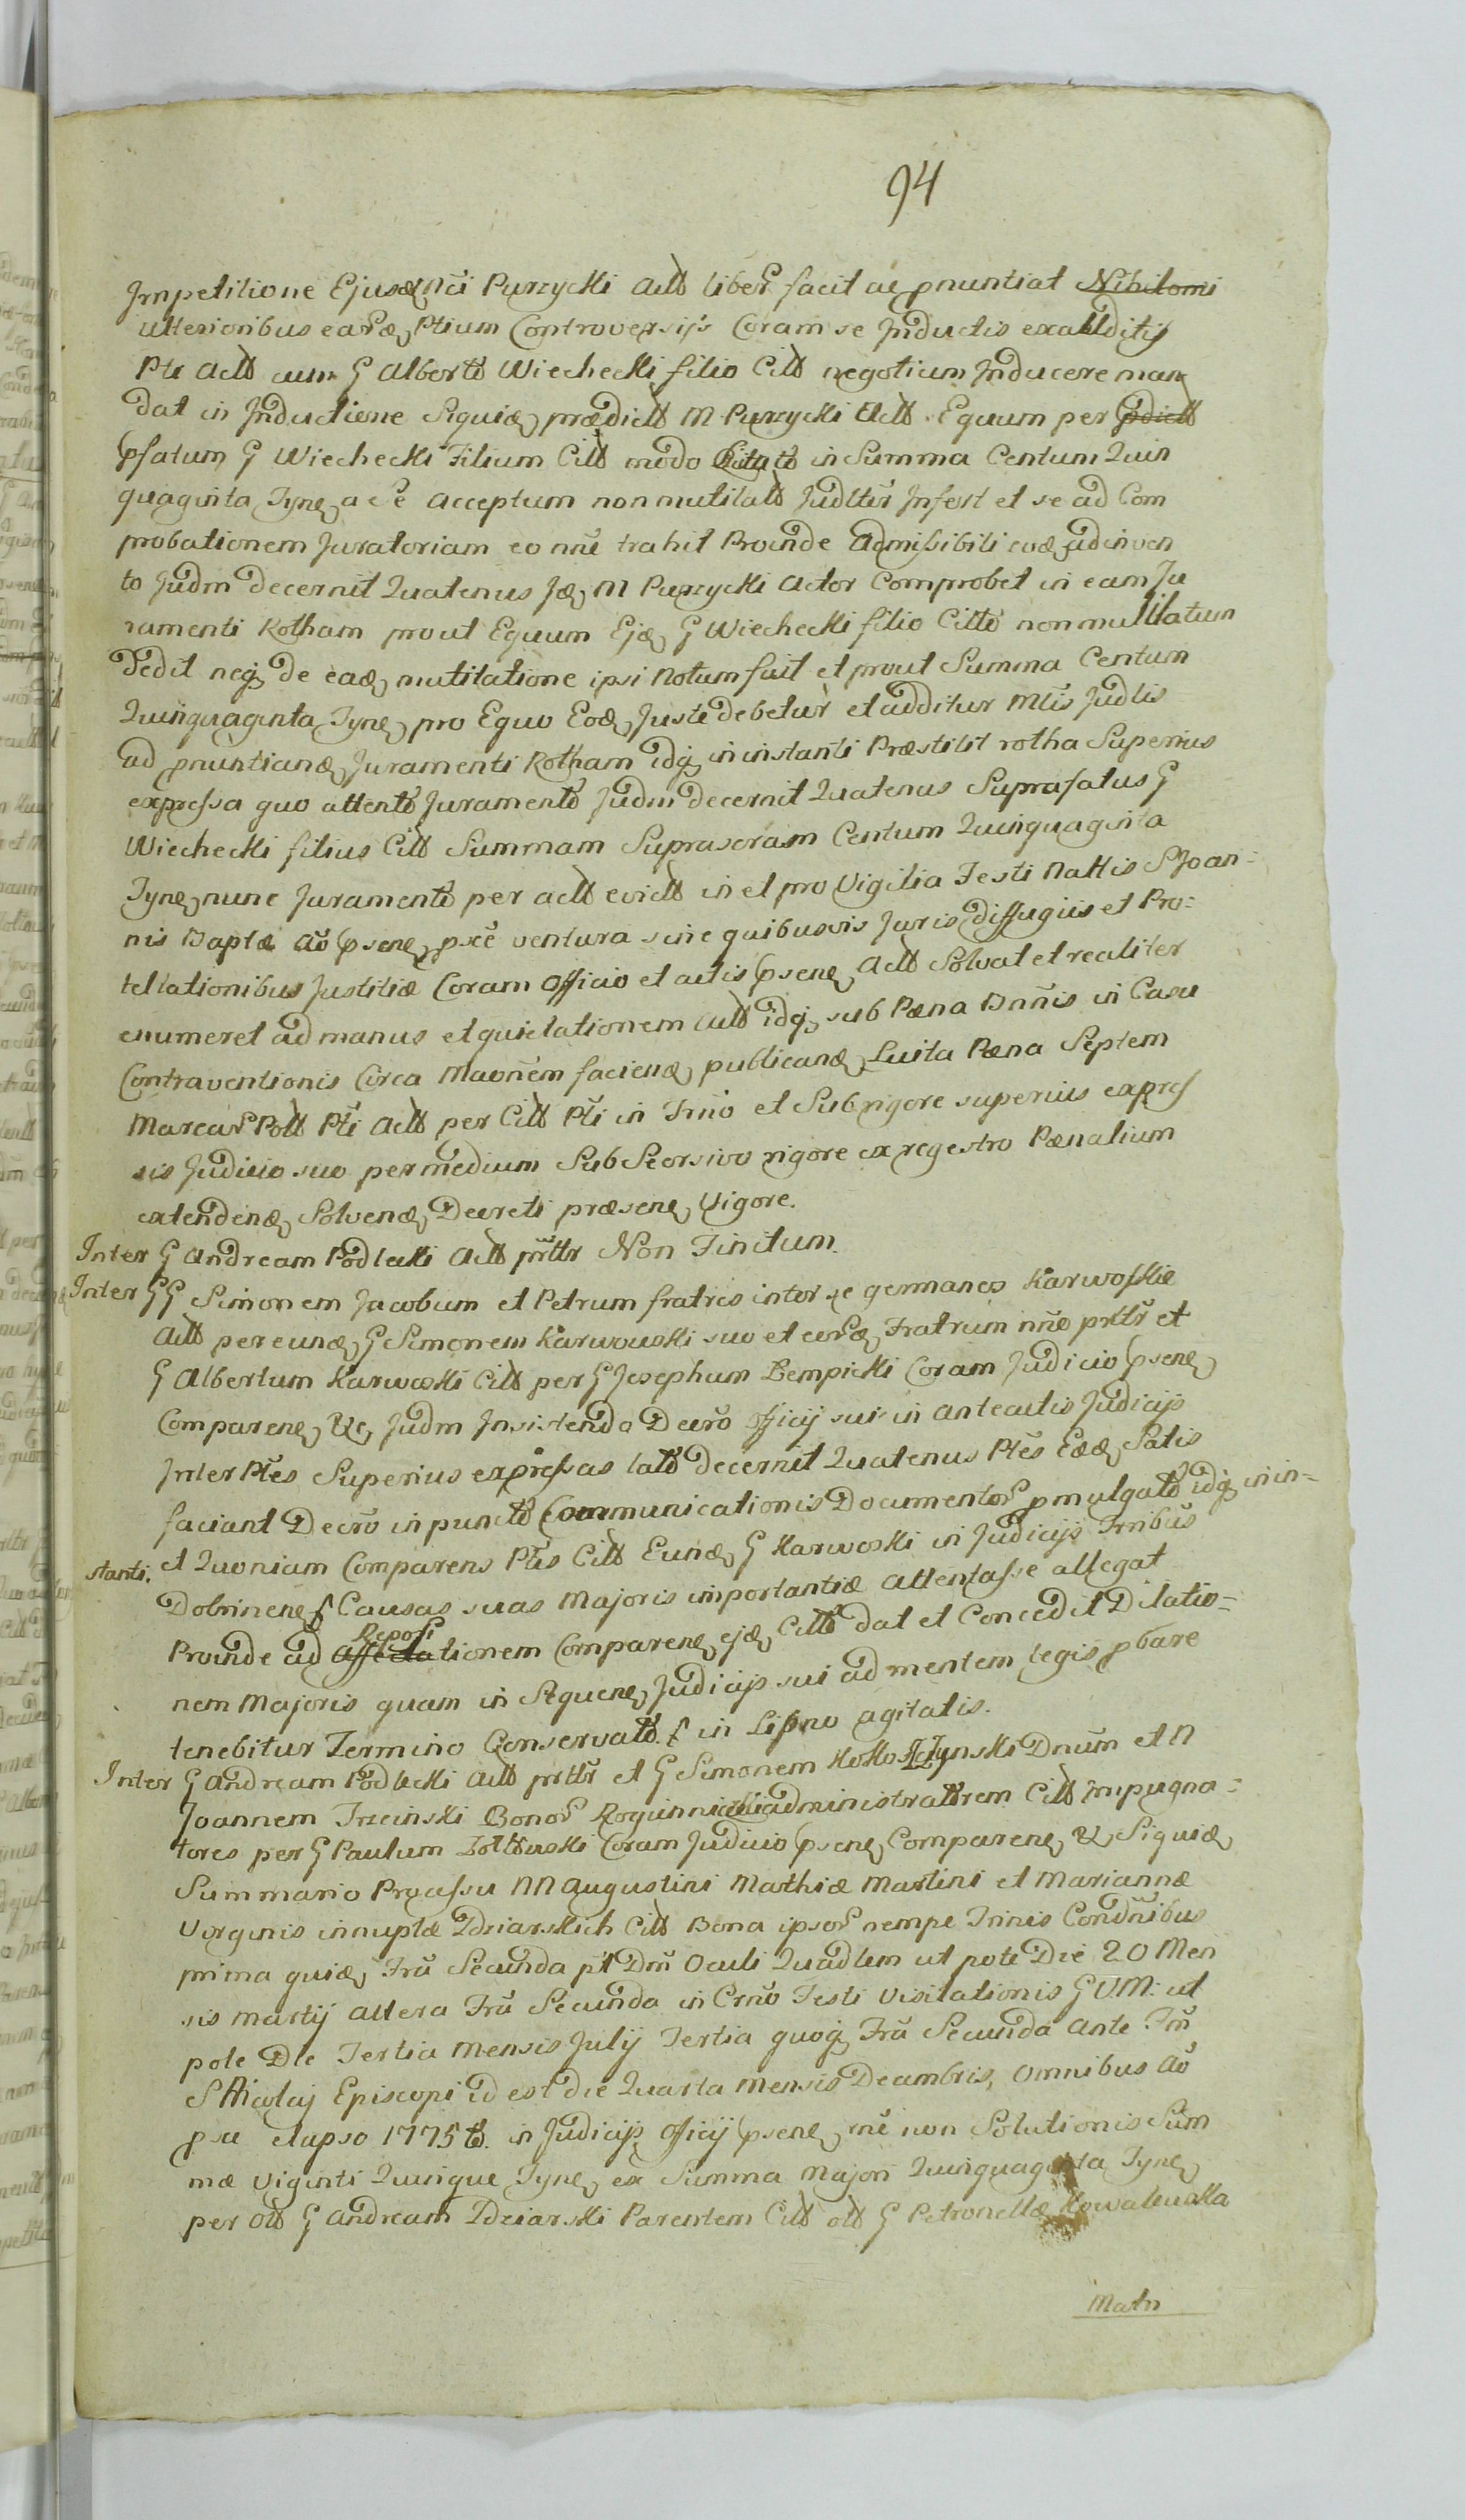 94
Impetitione Ejusd Nci Purzycki Actt liber facit ac pnuntiat Nihilomi
ulterioribus eard Ptium Controversijs Coram se Inductis exaudditis
Pte Actt cum G Albertt Wiechecki filio Citt negotium Inducere man
dat in Inductione Siquid prædictt M Purzycki Actt Equum per pdictt
psatum G Wiechecki Filium Citt modo in Summa Centum Quin
quaginta Tyne a Se acceptum non mutilatt Judttr Infert et se ad Com
probationem Juratoriam eo nne trahit Proinde Admissibili eod adinven
to Judm decernit Quatenus Id M Purzycki Actor Comprobet in eam Ju
ramenti Rotham prout Equum Ejd G Wiechecki filio Citto non mutilatum
Dedit neq de ead mutilatione ipsi Notum fuit et prout Summa Centum
Quinquaginta Tyne pro Equo Eod Juste debetur et additur Mtis Judtis
ad pnuntiand Juramenti Rotham idq in instanti Præstitit rotha Superius
expressa quo attento Juramento Judm decernit Quatenus Suprafatus G
Wiechecki filius Citt Summam Suprascram Centum Quinquaginta
Tyne nunc Juramento per actt evictt in et pro Vigilia Festi Nattis S Joan:
nis Baptæ Ao psene pxe ventura sine quibusvis Juris diffugiis et Pro:
tellationibus Justitiæ Coram Officio et actis psene Actt Solvat et realiter
enumeret ad manus et quietationem Actt idq sub Pæna Bnnis in Casu
Contraventionis Circa Maonem faciend publicand Luita Pæna Septem
Marcar Poll Pti Actt per Citt Pti in Frno et Sub rigore superius expres
sis Judicio suo per medium Sub Seorsivo rigore ex regestro Pænalium
extendend Solvend Decreti præsene Vigore.
Inter G Andream Podlecki Actt prttr Non Finitum.
Inter GG Simonem Jacobum et Petrum fratres inter se germanos Karwoskie
Actt per eund G Simonem Karwouski suo et eord Fratrum nne prttr et
G Albertum Karwoski Citt per G Josephum Dempicki Coram Judicio psene
Comparene &c Judm Insistendo Decro officij sui in anteactis Judicijs
Inter Ptes Superius expressas lato decernit Quatenus Ptes Eæd Satis
faciant Decro in puncto Communicationis Documentor pmulgato idq in in=
stanti. et Quoniam Comparens Ptis Citt Eund G Karwoski in Judicijs Frribus
Dobrinene Causas suas Majoris importantiæ attentasse allegat
Proinde ad affectationem Reposi Comparene ejd Citto dat et Concedit Dilatio=
nem Majoris quam in Sequene Judicijs sui ad mentem legis pbare
tenebitur Termino Conservato in Lipno agitatis.
Inter G Andream Podlecki Actt prttr et G Simonem Dnum et N
Joannem Trzcinski Bonor administratorem Citt Impugna=
tores per G Paulum Coram Judicio psene Comparene & Siquid
Summario Processu NN Augustini Mathiæ Martini et Mariannæ
Virginis innuptæ Idziarskich Citt Bona ipsor nempe Trinis Condnibus
prima quid Fra Secunda pt Dm Oculi Quadlem ut pote Die 20 Men
sis Martij altera Fra Secunda in Crno Festi Visitationis G V.M: ut
pote Die Tertia Mensis Julij Tertia quoq Fra Secunda Ante Fm
S Nicolaj Episcopi id est die Quarta Mensis Decembris, Omnibus Ao
pxe elapso 1775to in Judicijs Officij psene rne non Solutionis Sum
mæ Viginti Quinque Tyne ex Summa Majori Quinquaginta Tyne
per ott G Andream Idziarski Parentem Citt ott G Petronellæ Kowalewska
Matri